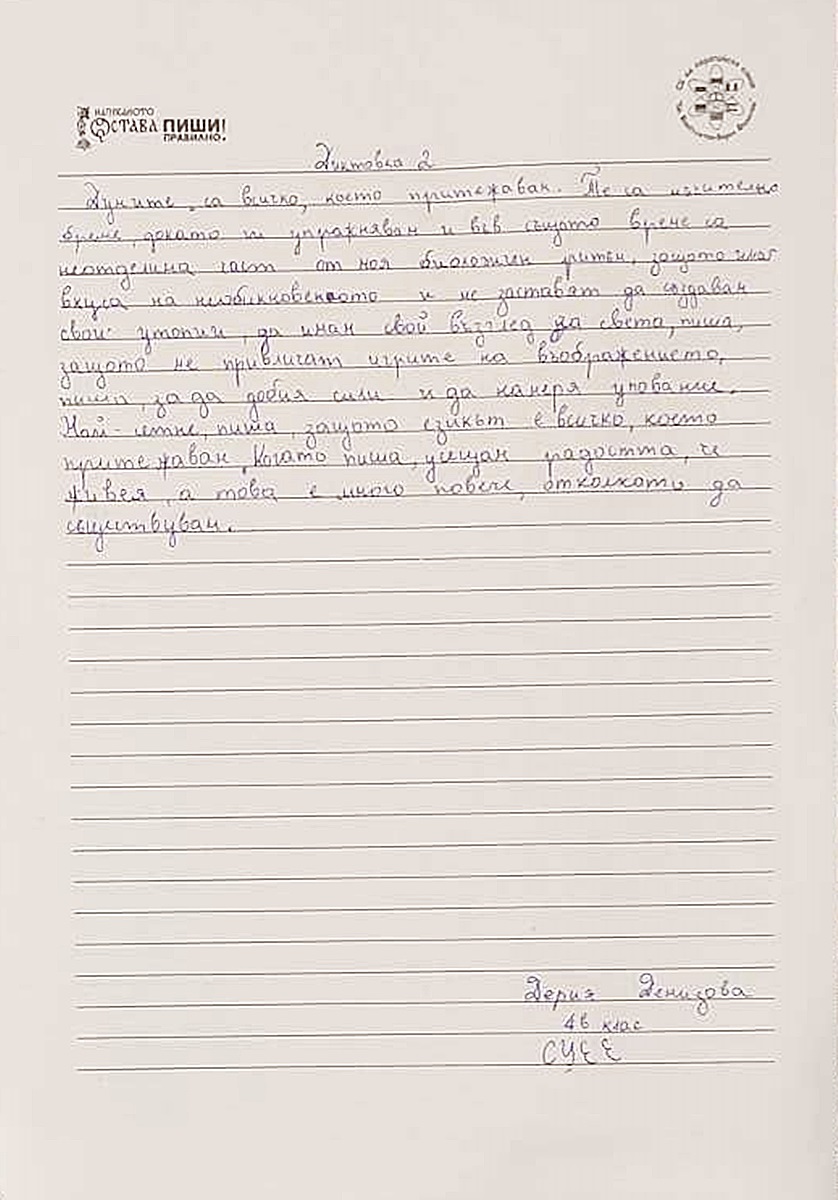 НАПИСАНОТО
ОСТАВА ПИШИ!
ПРАВИЛНО.
Диктовка 2
Думите, са всичко, което притежавам. Те са мъчително
бреме, докато ги упражнявам и във същото време са
неотделима част от моя биологичен ритъм, защото имат
вкуса на необикновеното и ме заставят да създавам
свои утопии, да имам свой възглед за света, пиша,
защото ме привличат игрите на въображението,
пиша, за да добия сили и да намеря упование.
Най-сетне, пиша, защото езикът е всичко, което
притежавам. Когато пиша, усещам радостта, че
живея, а това е много повече, отколкото да
съществувам.
Дериа Денизова
4в клас
СУЕЕ